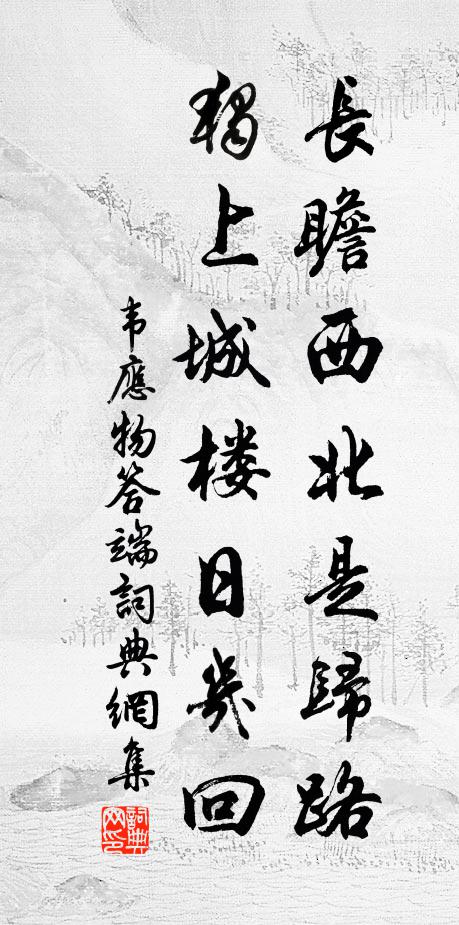 長瞻西北是歸路
獨上城楼日幾回
韦應物答端詞典網集
詞典网印